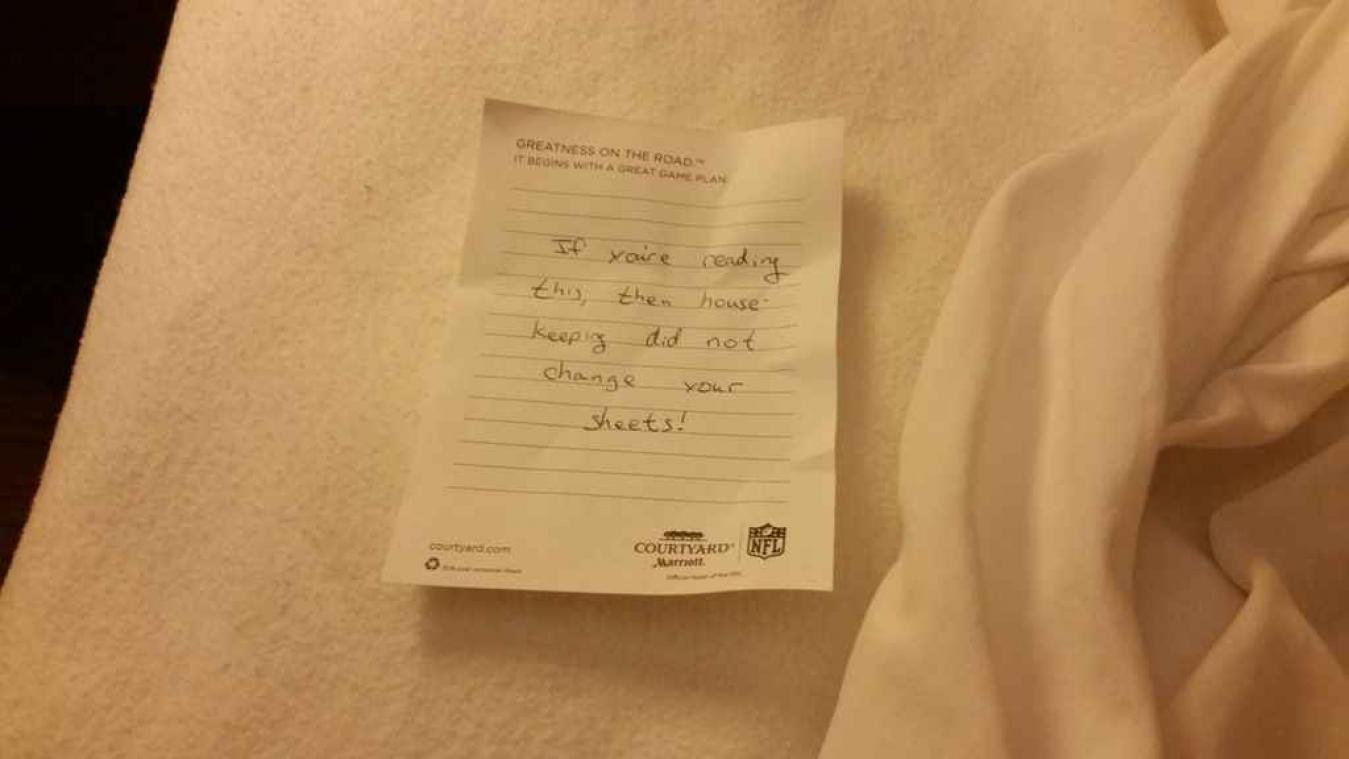 GREATNESS ON THE ROAD.™
IT BEGINS WITH A GREAT GAME PLAN.
If you're reading
this, then house-
keeping did not
change your
sheets!
courtyard.com
COURTYARD®
Marriott.
NFL